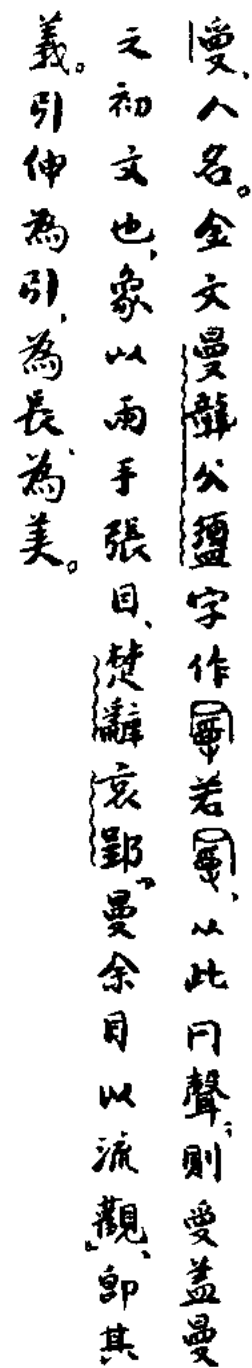 𡩜,人名。金文曼龏公盨字作若,从此冃聲;則蓋曼
之初文也,象以兩手張目、楚辭哀郢「曼余目以流觀」,即其
義。引伸為引,為長為美。